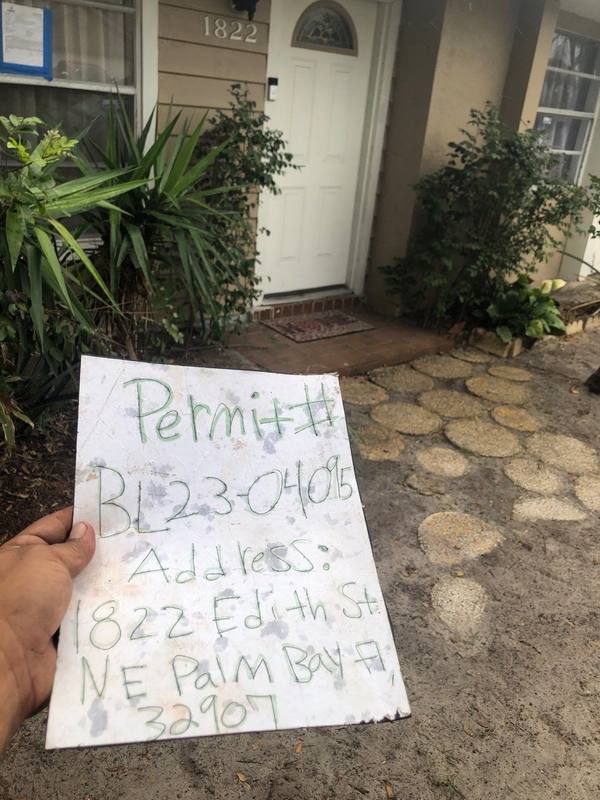 1822
Permit#
BL23-04095
Address:
1822 Edith St.
NE Palm Bay Fl,
32907